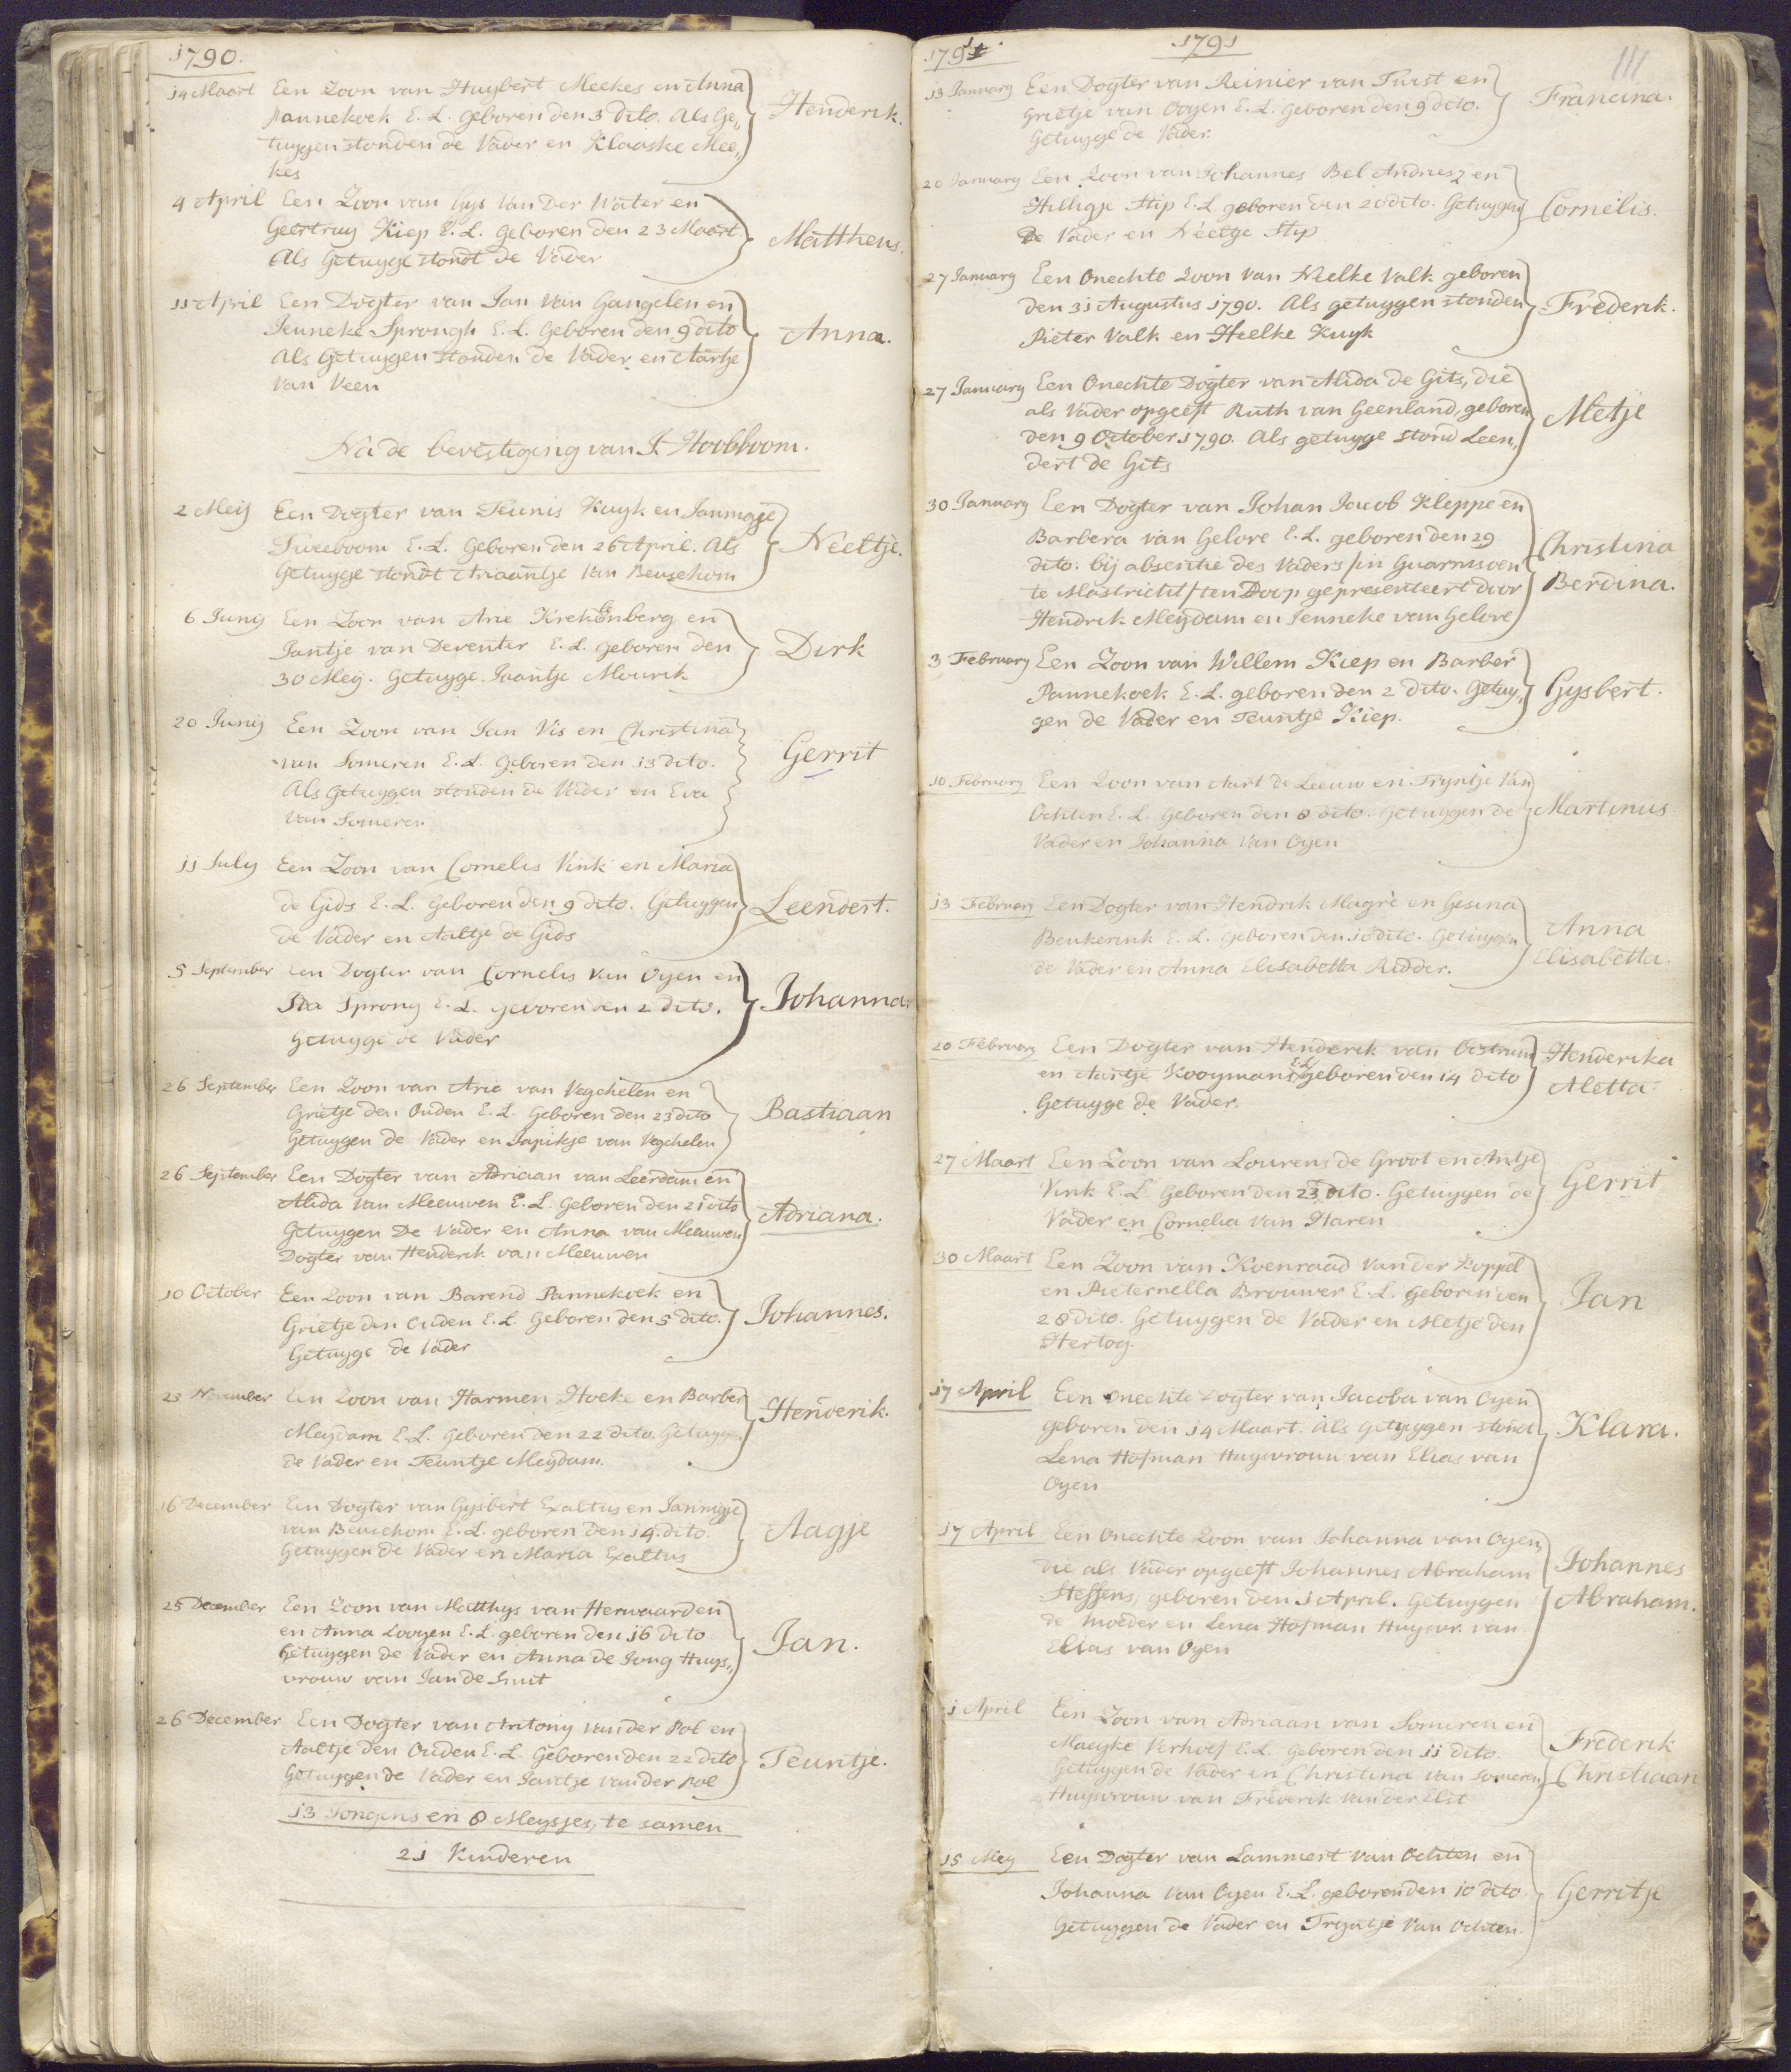 1790.
14 Maart Een Zoon van Huybert Meekes en Anna
Pannekoek E. L. Geboren den 3 dito. Als Ge„
tuygen stonden de Vader en Klaaske Mee„
kes
Henderik.
4 April Een Zoon van Gys Van Der Water en
Geertruy Kiep E. L. Geboren den 23 Maart.
Als Getuyge stondt de Vader
Mattheus.
11 April Een Dogter van Jan Van Gangelen en
Jenneke Sprongh E. L. Geboren den 9 dito
Als Getuygen stonden de Vader en Aartje
van Veen
Anna.
Na de bevestiging van J. Hoobboom.
2 Meij Een Dogter van Teunis Kuyk en Janmagje
Tweeboom E. L. Geboren den 26 April. Als
Getuyge stondt Ariaantje Van Beusekom
Neeltje.
6 Junij Een Zoon van Arie Krekenberg en
Jantje van Deventer E. L. geboren den
30 Meij. Getuyge Jaantje Mourik
Dirk
20 Junij Een Zoon van Jan Vis en Christina
van Someren E. L. Geboren den 13 dito.
Als Getuygen stonden de Vader en Eva
Van Someren
Gerrit
11 July Een Zoon van Cornelis Vink en Maria
de Gids E. L. Geboren den 9 dito. Getuygen
de Vader en Aaltje de Gids
Leendert.
5 September Een Dogter van Cornelis Van Oyen en
Ida Sprong E. L. geboren den 2 dito.
Getuyge de Vader
Johanna.
26 September Een Zoon van Arie van Vegchelen en
Grietje den Ouden E. L. Geboren den 23 dito
Getuygen de Vader en Japikje van Vegchelen
Bastiaan
26 September Een Dogter van Adriaan van Leerdam en
Alida Van Meeuwen E. L. Geboren den 21 dito
Getuygen De Vader en Anna van Meeuwen
Dogter van Henderik van Meeuwen
Adriana.
10 October Een Zoon van Barend Pannekoek en
Grietje den Ouden E. L. Geboren den 5 dito.
Getuyge de Vader
Johannes.
November Een Zoon van Harmen Hoeke en Barber
Meydam E. L. Geboren den 22 dito. Getuygen
de Vader en Teuntje Meydam.
Henderik.
16 December Een Dogter van Gysbert Exaltus en Janmigje
van Beusekom E. L. geboren den 14. dito.
Getuygen de Vader en Maria Exaltus
Aagje
25 December Een Zoon van Matthys van Herwaarden
en Anna Looyen E. L. geboren den 16 dito
Getuygen de Vader en Anna de Jong Huys„
vrouw van Jan de Smit
Jan.
26 December Een Dogter van Antony van der Pol en
Aaltje den Ouden E. L. Geboren den 22 dito
Getuygen de Vader en Jantje van der Pol
Teuntje.
13 Jongens en 8 Meysjes, te samen
21 Kinderen
1791.
1791
111
13 January Een Dogter van Reinier van Twist en
Grietje van Ooyen E. L. Geboren den 9 dito.
Getuyge de Vader.
Francina.
20 January Een Zoon van Johannes Bel Andriesz en
Hilligje Stip E. L. geboren den 20 dito. Getuygen
De Vader en Neetje Stip
Cornelis.
27 January Een Onechte Zoon van Neelke Valk geboren
den 31 Augustus 1790. Als getuygen stonden
Pieter Valk en Heelke Kuyk
Frederik.
27 January Een Onechte Dogter van Alida de Gits, die
als Vader opgeeft Ruth van Geenland, geboren
den 9 October 1790. Als getuyge stond Leen„
dert de Gits
Metje
30 January Een Dogter van Johan Jacob Kleppe en
Barbera van Gelove E. L. geboren den 29
dito. bij absentie des Vaders /in Guarnisoen
te Mastricht/ ten Doop gepresenteert door
Hendrik Meijdam en Jenneke van Gelove
Christina
Berdina.
3 February Een Zoon van Willem Kiep en Barber
Pannekoek E. L. geboren den 2 dito. Getuy„
gen de Vader en Teuntje Kiep.
Gysbert.
10 February Een Zoon van Aart de Leeuw en Tryntje Van
Ochten E. L. Geboren den 8 dito. Getuygen de
Vader en Johanna Van Oyen
Martinus
13 February Een Dogter van Hendrik Magrè en Gesina
Beukerink E. L. geboren den 10 dito. Getuygen
de Vader en Anna Elisabetta Ridder.
Anna
Elisabetta.
20 February Een Dogter van Henderik van Oostrum
en Aartje Kooymans E. L. geboren den 14 dito
Getuyge de Vader.
Henderika
Aletta
27 Maart Een Zoon van Lourens de Groot en Antje
Vink E. L. Geboren den 23 dito. Getuygen de
Vader en Cornelia Van Haren
Gerrit
30 Maart Een Zoon van Koenraad Van der Koppel
en Pieternella Brouwer E. L. Geboren den
28 dito. Getuygen de Vader en Metje den
Hertog.
Jan
17 April Een onechte Dogter van Jacoba van Oyen
geboren den 14 Maart. Als Getuygen stondt
Lena Hofman Huysvrouw van Elias van
Oyen
Klara.
17 April Een Onechte Zoon van Johanna van Oyen,
die als Vader opgeeft Johannes Abraham
Steffens, geboren den 1 April. Getuygen
de moeder en Lena Hofman Huysvr. van
Elias van Oyen
Johannes
Abraham.
1 April Een Zoon van Adriaan van Someren en
Maeyke Verhoef E. L. Geboren den 11 dito.
Getuygen de Vader en Christina Van Someren
Huysvrouw van Frederik Van der Elst
Frederik
Christiaan
15 Mey Een Dogter van Lammert Van Ochten en
Johanna Van Oyen E. L. geboren den 10 dito
Getuygen de Vader en Tryntje Van Ochten.
Gerritje